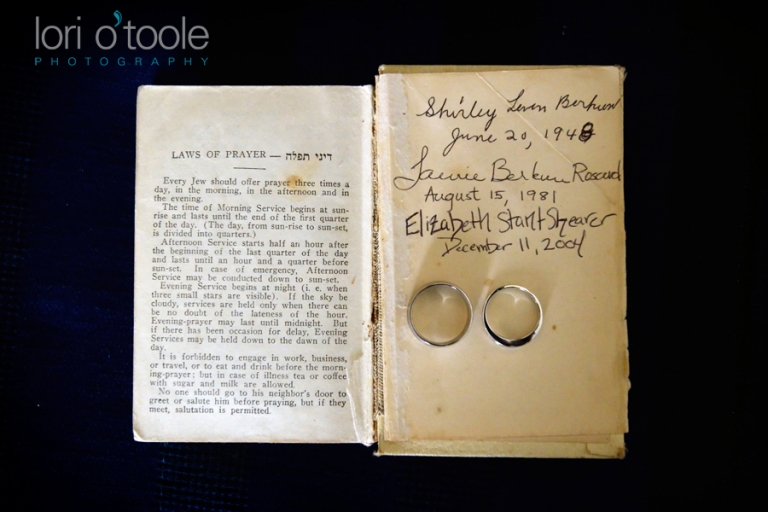 lori o'toole
PHOTOGRAPHY
LAWS OF PRAYER — דיני תפלה
Every Jew should offer prayer three times a
day, in the morning, in the afternoon and in
the evening.
The time of Morning Service begins at sun-
rise and lasts until the end of the first quarter
of the day. (The day, from sun-rise to sun-set,
is divided into quarters.)
Afternoon Service starts half an hour after
the beginning of the last quarter of the day
and lasts until an hour and a quarter before
sun-set. In case of emergency, Afternoon
Service may be conducted down to sun-set.
Evening Service begins at night (i. e. when
three small stars are visible). If the sky be
cloudy, services are held only when there can
be no doubt of the lateness of the hour.
Evening-prayer may last until midnight. But
if there has been occasion for delay, Evening
Services may be held down to the dawn of the
day.
It is forbidden to engage in work, business,
or travel, or to eat and drink before the morn-
ing-prayer; but in case of illness tea or coffee
with sugar and milk are allowed.
No one should go to his neighbor's door to
greet or salute him before praying, but if they
meet, salutation is permitted.
Shirley Leven
June 20, 1948
Laurie Berkun
August 15, 1981
Elizabeth Shearer
December 11, 2004